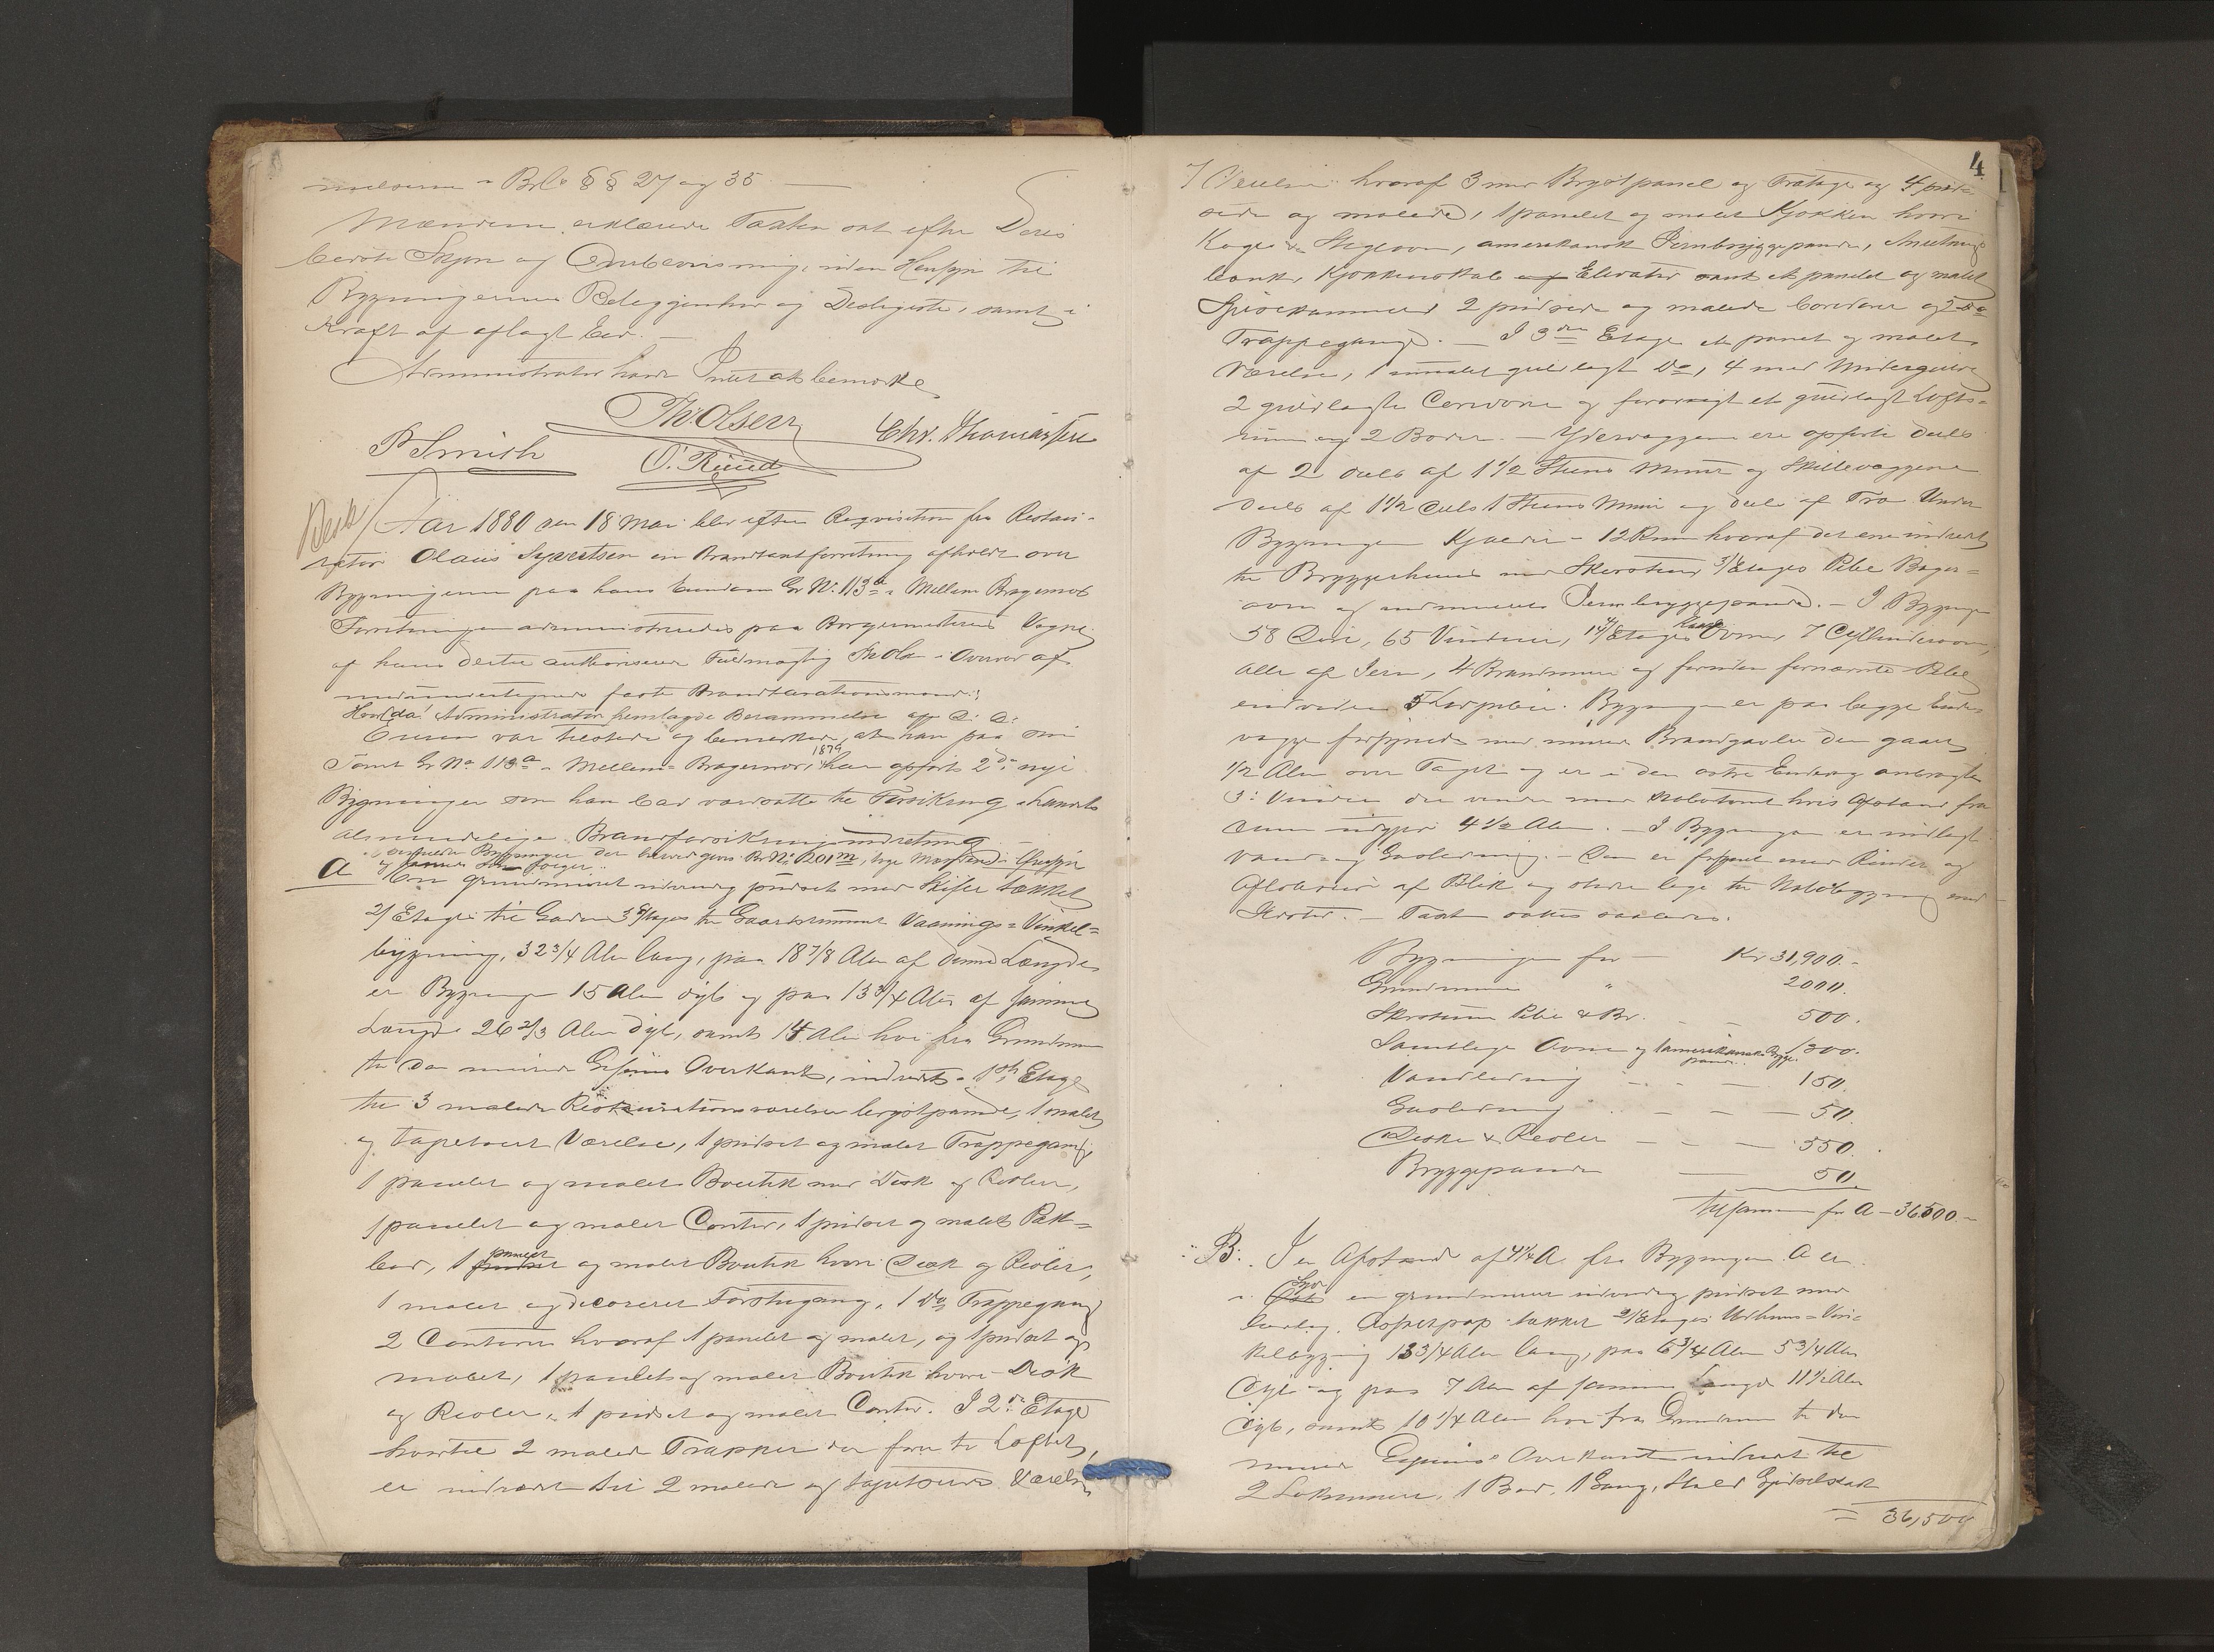 Brl. §§ 27 og 35
Mændene erklærede Taxten sat efter Deres
bedste Skjøn og Overbevisning, uden Hensyn til
Bygningernes Beleggenhed og Desligeste, samt i
Kraft af aflagt Eed. —
Administrator havde Intet at bemærke
Th. Olsen
P Smith Chr. Thomassen
O. Ruud
Aar 1880 den 18 Mai blev efter Reqvisition fra Restau-
ratør Olaus Syvertsen en Brandtaxtforretning afholdt over
Bygningerne paa hans Eiendom Gr No. 113a i Mellem Bragernes
Forretningen administreredes paa Borgermesterens Vegne
af hans dertil authoriserede Fuldmægtig Th Olsen i Overvær af
medundertegnede faste Brandtaxationsmænd:
Hvorda! Administrator fremlagde Berammelse
Eieren var tilstede og bemærkede, at han paa sin
Tomt Gr No 113a i Mellem Bragernes 1879 har opført 2de nye
Bygninger som han bad værdsatte til Forsikring i Landets
almindelige Brandforsikringsindretning —
Bygninger der Br No. 201m,
a En grundmuret indvendig pudset med Skifer tækket
2/ Etages til Gaden 3 Etages til Gaardsrummet Vaanings- Vinkel-
bygning, 32 3/4 Alen lang, paa 18 7/8 Alen af denne Længde
er Bygningen 15 Alen dyb og paa 13 3/4 Alen af samme
Længde 26 2/3 Alen dyb, samt 14 Alen høi fra Grundmuren
til den murede Gesims Overkant, indredet i 1ste Etage
til 3 malede Restaurationsværelser brystpanede, 1 malet
og tapetseret Værelse, 1 pudset og malet Trappegang,
1 panelet og malet Boutik med Disk og Reoler,
1 panelet og malet Contor, 1 pudset og malet Pak-
bod, 1 panelet og malet Boutik hvori Disk og Reoler,
1 malet og decoreret Forstugang, 1 do Trappegang
2 Contorer hvoraf 1 panelet og malet, og 1 pudset og
malet, 1 panelet og malet Boutik hvori Disk
og Reoler, 1 pudset og malet Contor. I 2den Etage
hvortil 2 malede Trapper der fører til Loftet,
er indredet til 2 malede og tapetserede Værelser,
4
7 Værelser hvoraf 3 med Brystpanel og Trætage og 4 pud-
sede og malede, 1 panelet og malet Kjøkken hvori
Koge & Stegeovn, amerikansk Jernbryggepande, Anretnings
bænk, Kjøkkenskab Elevator samt et panelet og malet
Spisekammer 2 pudsede og malede Coridorer og
Trappegange. — I 3die Etage et panelet og malet
Værelse, 1 umalet gulvlagt Do, 4 med Undergulve
2 gulvlagte Coridorer og forøvrigt et gulvlagt Lofts-
rum og 2 Boder. — Ydervæggene ere opførte deels
af 2 deels af 1 1/2 Steens Muur og Skillevæggene
deels af 1 1/2 deels 1 Steens Muur og deels af Træ Under
Bygningen Kjælder i 12 Rum hvoraf det ene indredet
til Bryggerhuus med Skorsteen 3/Etages Pibe Bager-
ovn og indmuret Jernbryggepande. — I Bygningen
58 Døre, 65 Vinduer, 14 4/Etages Kakkelovne, 7 Cylinderovne,
alle af Jern, 4 Brandmure og foruden fornævnte Pibe
endvidere 5 Løbpiber. Bygningen er paa begge Ende
vægge forsynede med murede Brandgavle der gaar
1/2 Alen over Taget og er i den østre Endevæg anbragte
3 Vinduer der vender mod Nabotomt hvis Afstand fra
denne udgjør 4 1/2 Alen. — I Bygningen er indlagt
Vand- og Gasledning. — Den er forsynet med Render og
Afløbsrør af Blik og støder lige til Nabobygning mod
— Taxten sættes saaledes:
Bygningen for — Kr 31,900.-
Grundmuren " 2000.
Skorsteen Piber & Br. — — 500.
Samtlige Ovne og 1 amerikansk Brygge- pande 1300.
Vandledning — — 150.
Gasledning — — 50.
Diske & Reoler — — 550.
Bryggepanden — 50.
Tilsammen for A — 36500.—
B: I en Afstand af 4 1/4 A. fra Bygningen A er
i Syd en grundmuret indvendig pudset med
Asfaltpap tækket 2/Etages Udhuus-Vin-
kelbygning 13 3/4 Alen lang, paa 6 3/4 Alen 5 3/4 Alen
dyb og paa 7 Alen af samme Længde 11 1/2 Alen
dyb, samt 10 1/4 Alen høi fra Grundmuren til den
murede Gesims's Overkant indredet til
2 Lokummer, 1 Bod, 1 Gang, Stald
= 36,500